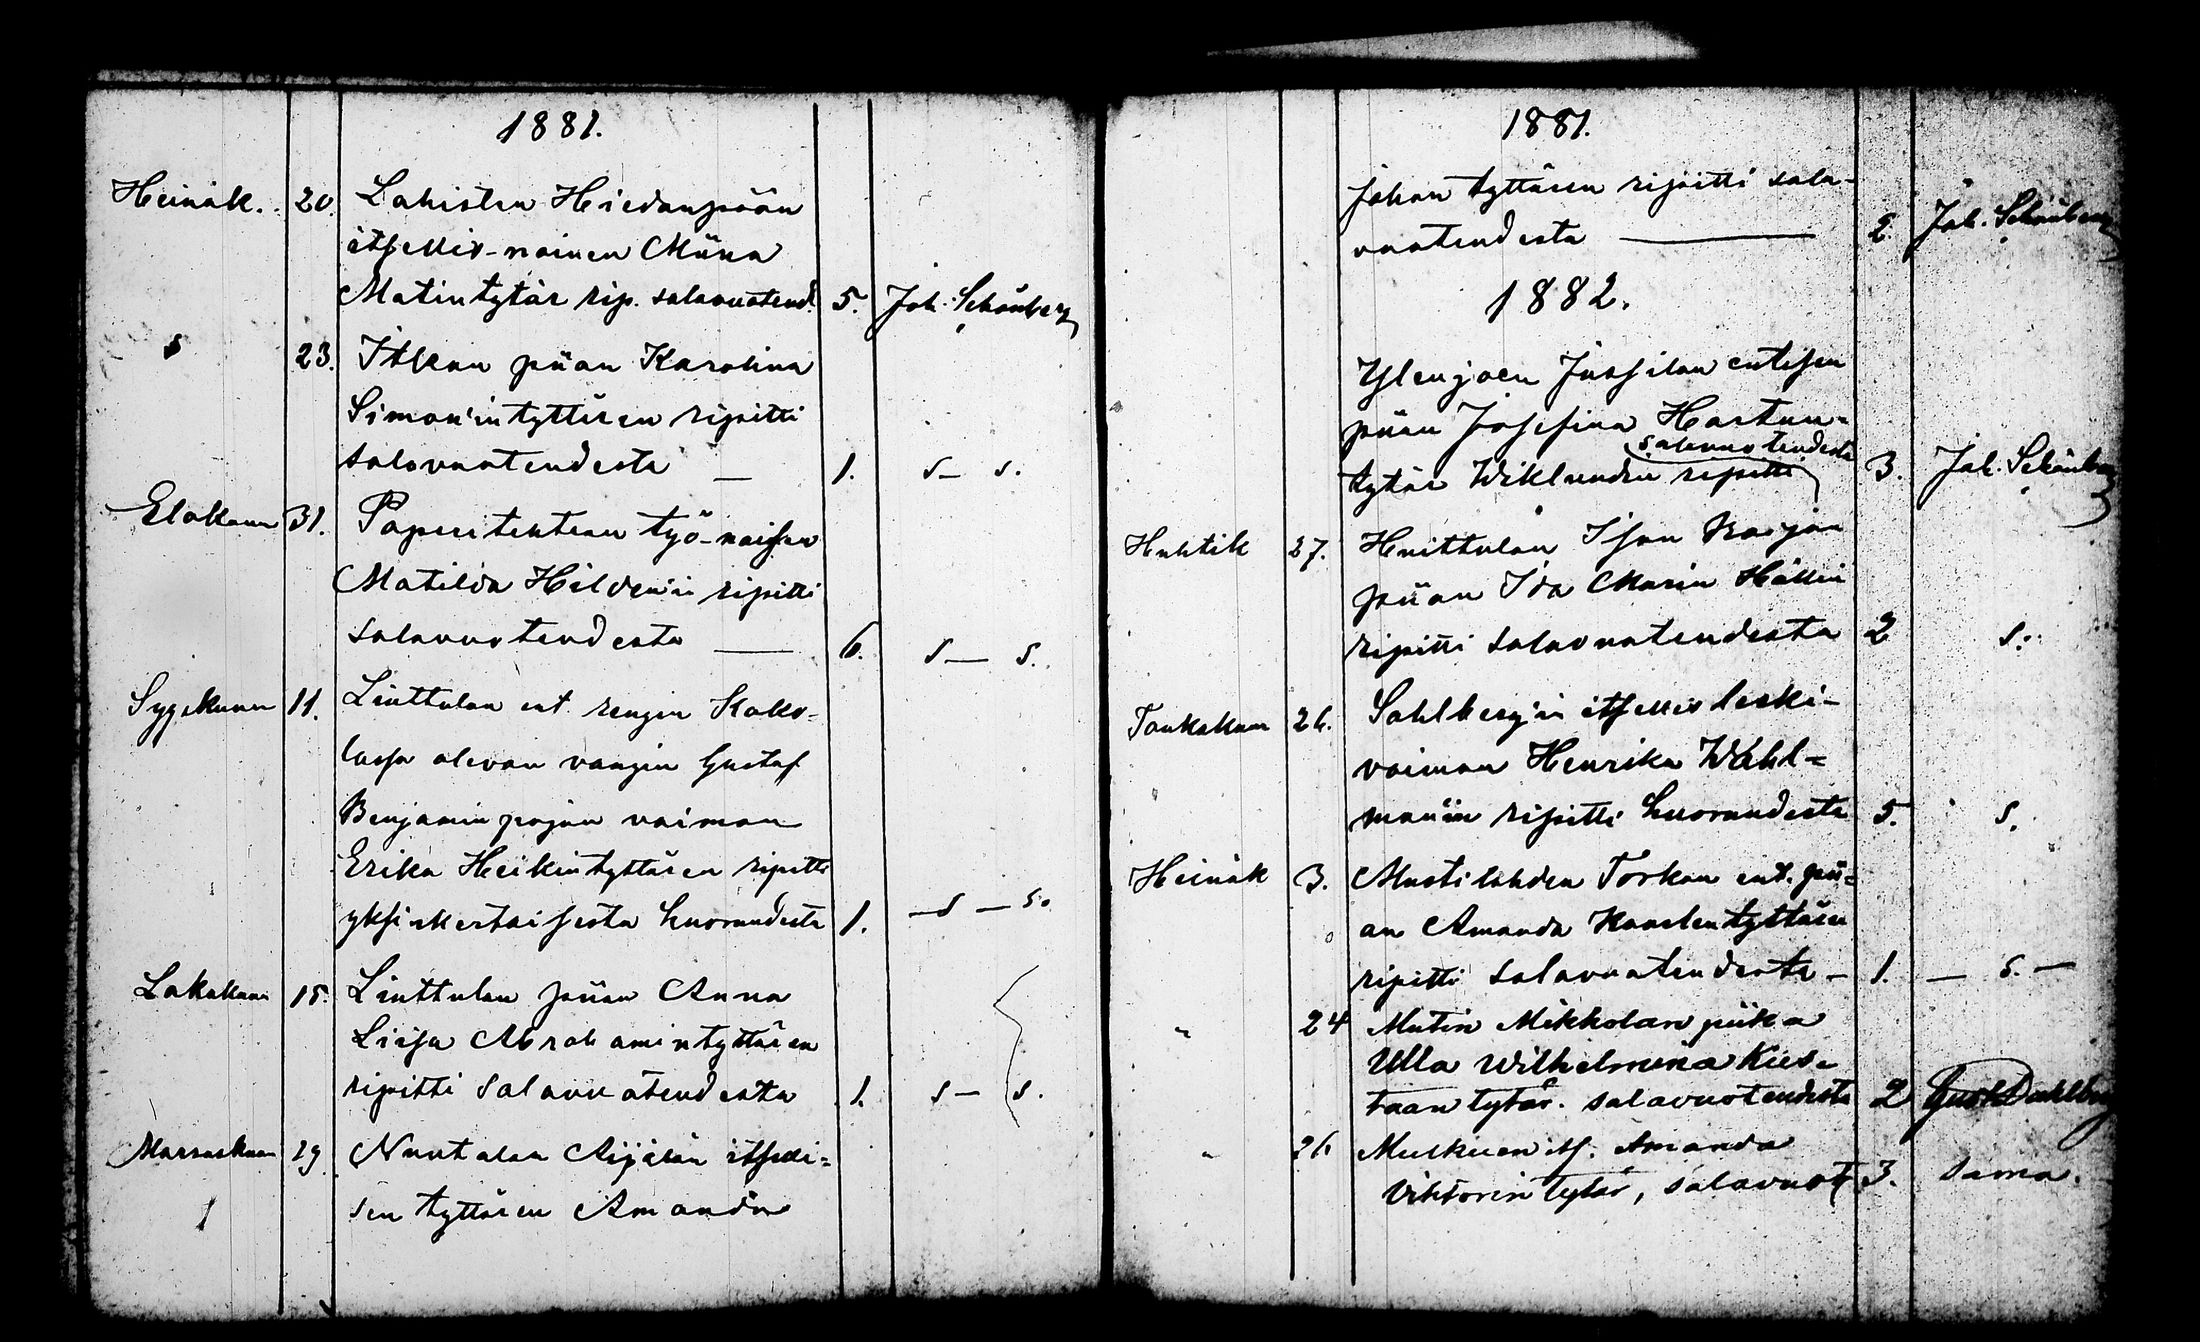 1881.
Heinäk. 20. Lahisten Hiedanpään
itsellis-nainen Miina
Matintytär rip. salavuotend. 5. Joh. Schönberg
s 23. Itkan piian Karolina
Simon'in tyttären ripitti
salavuotendesta — 1. s — s.
Elokuun 31. Paperitehtaan työ-naisen
Matilda Hilden'in ripitti
salavuotendesta — 6. s — s.
Syyskuun 11. Liuttulan ent. rengin Kako-
lassa olevan vangin Gustaf
Benjamin pojan vaiman
Erika Heikintyttären ripitti
yksinkertaisesta huorundesta 1. — s — s.
Lokakuun 15. Liuttulan piian Anna
Liisa Abrahamintyttären
ripitti salavuotendesta 1. s — s.
Marraskuun 29 Nuutalan Äijälän itselli=
sen tyttären Amanda
1881.
Johan tyttären ripitti sala-
vuotendesta — 2. Joh. Schönberg
1882.
Ylenjoen Jussilan entisen
piian Josefina Kastun=
salavuotendesta
tytär Wiklundin ripitti 3. Joh. Schönberg
Huhtik 27. Huittulan Ison Karjan
piian Ida Maria Hällin
ripitti salavuotendesta 2 s.
Toukokuun 26. Sahlberg'in itsellis leski-
vaiman Henrika Wahl=
man'in ripitti huorundesta 5. s.
Heinäk 3. Mustilahden Torkan ent. pii=
an Amanda Kaarlentyttären
ripitti salavuotendesta — 1. — s. —
" 24 Mutin Mikkolan piika
Ulla Wilhelmina Kus-
taan tytär. salavuotendesta 2 Gust Dahlberg
" 26 Muskuen its. Amanda
Viktorin tytär, salavuot 3. sama.